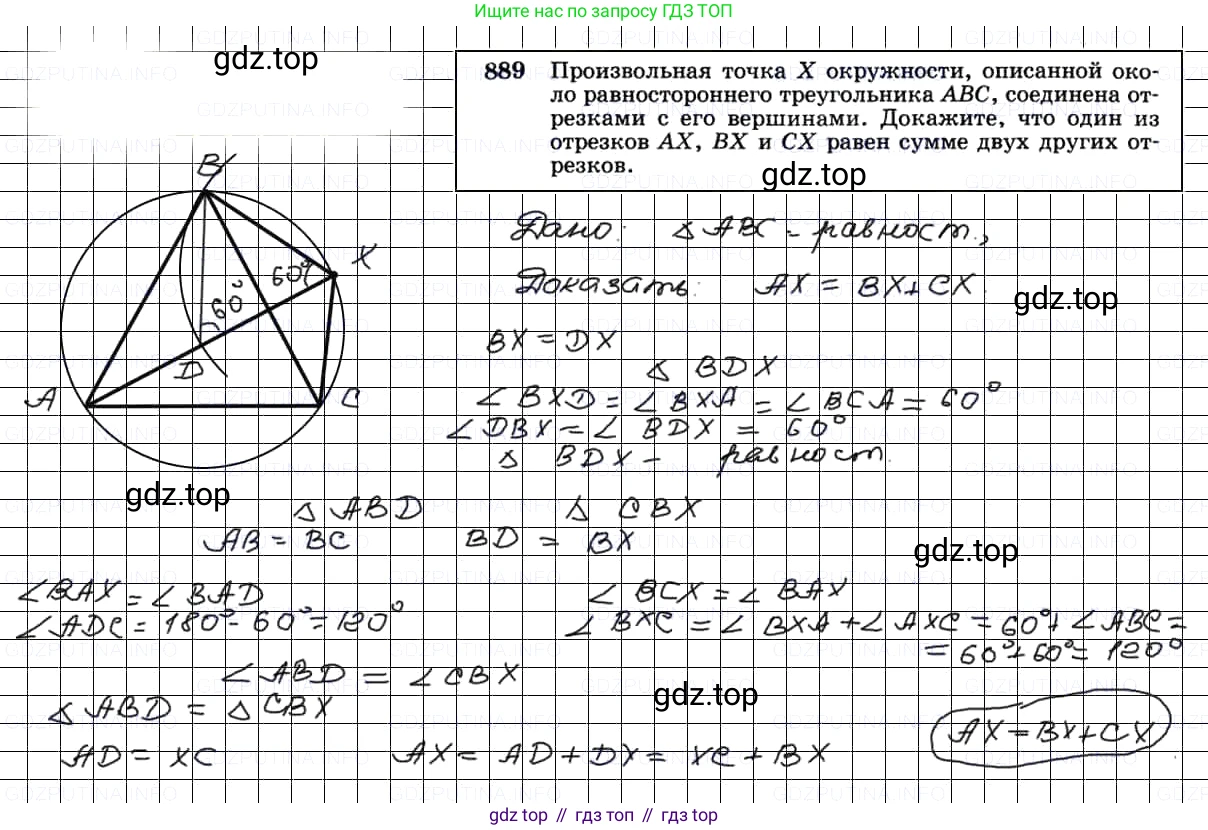 Ищите нас по запросу ГДЗ ТОП
gdz.top
889 Произвольная точка X окружности, описанной око-
ло равностороннего треугольника ABC, соединена от-
резками с его вершинами. Докажите, что один из
отрезков AX, BX и CX равен сумме двух других от-
резков.
gdz.top
B
X
60°
60°
D
A
C
Дано: △ ABC - равност.,
Доказать: AX = BX + CX.
gdz.top
BX = DX
△ BDX
∠ BXD = ∠ BXA = ∠ BCA = 60°
∠ DBX = ∠ BDX = 60°
△ BDX - равност.
gdz.top
△ ABD △ CBX
AB = BC BD = BX
gdz.top
∠BAX = ∠ BAD ∠ BCX = ∠ BAX
∠ADC = 180° - 60° = 120° ∠ BXC = ∠ BXA + ∠ AXC = 60° + ∠ ABC =
= 60° + 60° = 120°
∠ ABD = ∠ CBX
gdz.top
△ ABD = △ CBX
AX = BX + CX
AD = XC AX = AD + DX = XC + BX
gdz top // гдз топ // gdz top